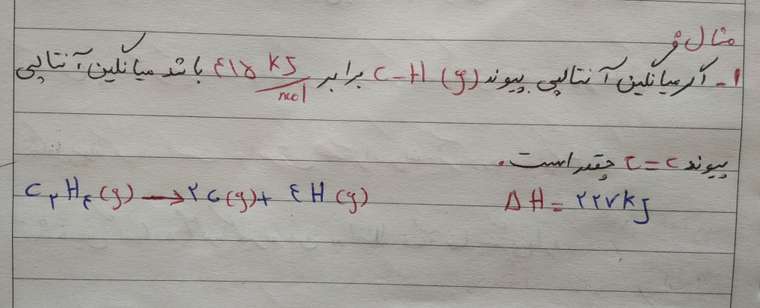 مثال:
۱- اگر میانگین آنتالپی پیوند C-H (g) برابر ۴۱۵ kJ/mol باشد میانگین آنتالپی
پیوند C=C چقدر است.
C۲H۴(g) → ۲C(g) + ۴H(g) ΔH = ۲۲۷kJ